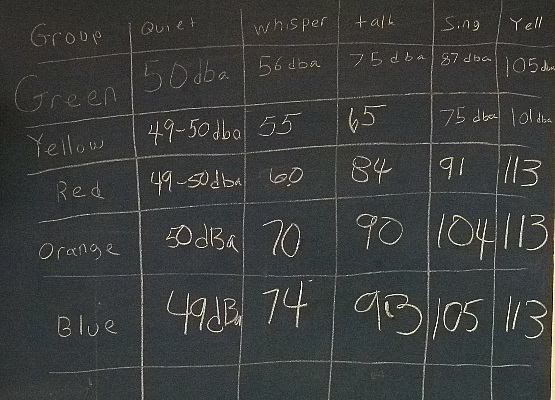 Group Quiet Whisper talk Sing Yell
Green 50dba 56dba 75dba 87dba 105dba
Yellow 49-50dba 55 65 75dba 101dba
Red 49-50dba 60 84 91 113
Orange 50dBa 70 90 104 113
Blue 49dBa 74 93 105 113